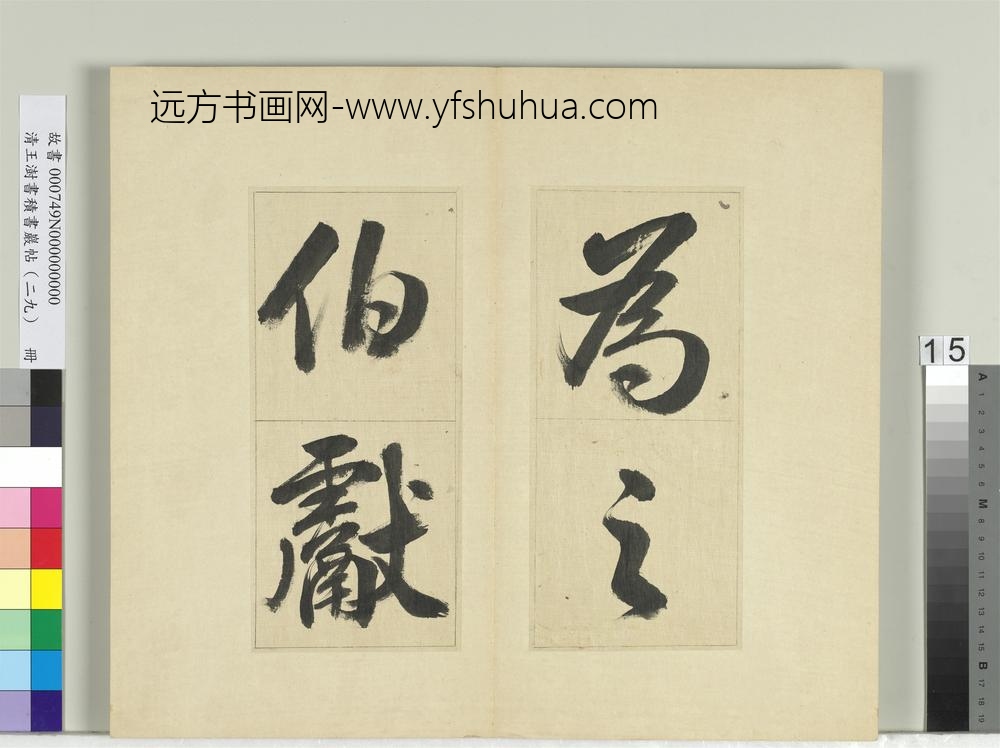 远方书画网-www.yfshuhua.com
為之
伯獻
故書 000749N000000000
清王澍書積書巖帖（二九） 冊
15
A 1 2 3 4 5 6 M 8 9 10 11 12 13 14 15 B 17 18 19